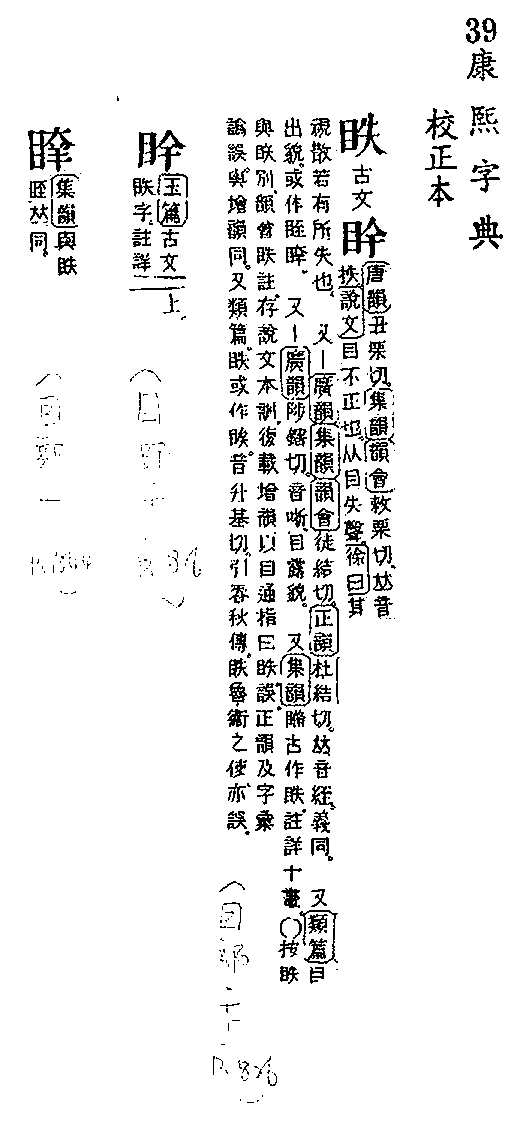 39康熙字典
校正本
眣
古文
𥄑
唐韻丑栗切集韻韻會敕栗切𠀤音
抶說文目不正也从目失聲徐曰其
視散若有所失也 又丨廣韻集韻韻會徒結切正韻杜結切𠀤音絰義同 又類篇目
出貌或作眰 又丨廣韻陟鎋切音哳目露貌 又集韻瞬古作眣註詳十二畫○按眣
與眹別韻會眣註存說文本訓復載增韻以目通指曰眣誤正韻及字彙
譌誤與增韻同又類篇眣或作昳音升基切引春秋傳眣魯衛之使亦誤
(目部
P. 826)
玉篇古文
眣字註詳
上
(目部
P. 826)
集韻與眣
𠀤同
(目部